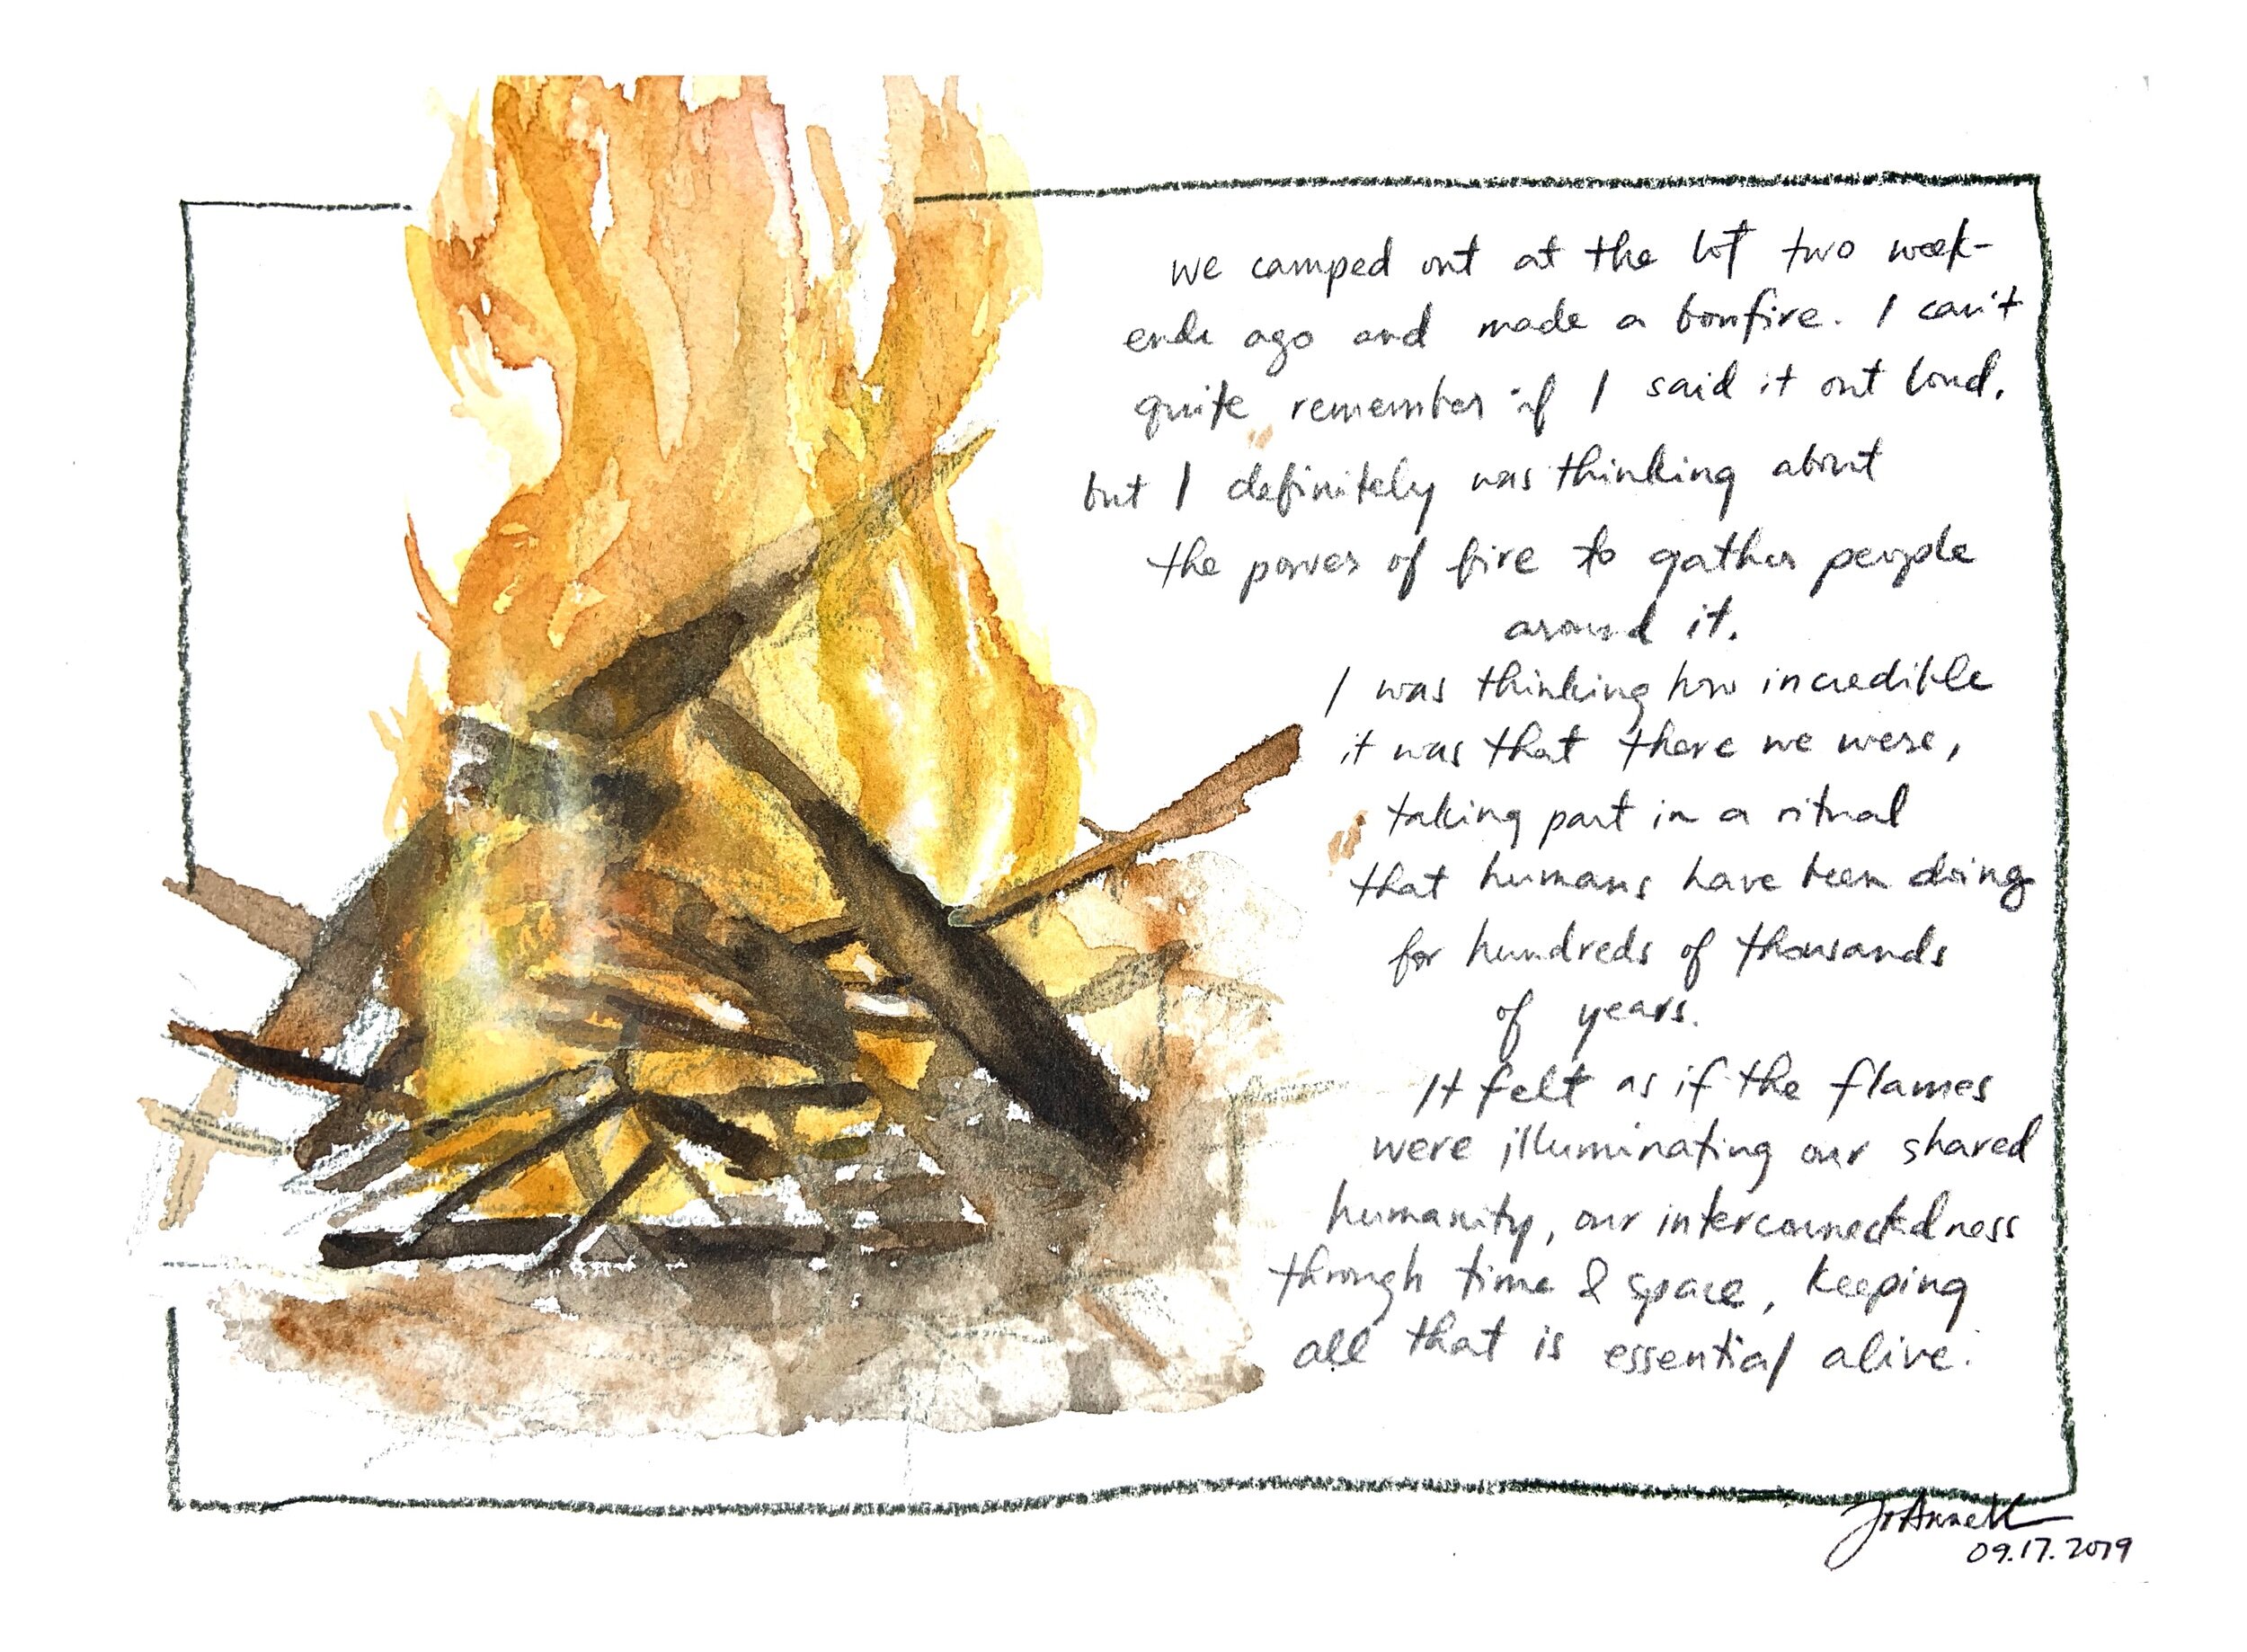 we camped out at the lot two week-
ends ago and made a bonfire. I can't
quite remember if I said it out loud,
but I definitely was thinking about
the power of fire to gather people
around it.
I was thinking how incredible
it was that there we were,
taking part in a ritual
that humans have been doing
for hundreds of thousands
of years.
It felt as if the flames
were illuminating our shared
humanity, our interconnectedness
through time & space, keeping
all that is essential alive.
JoAnneK
09.17.2019